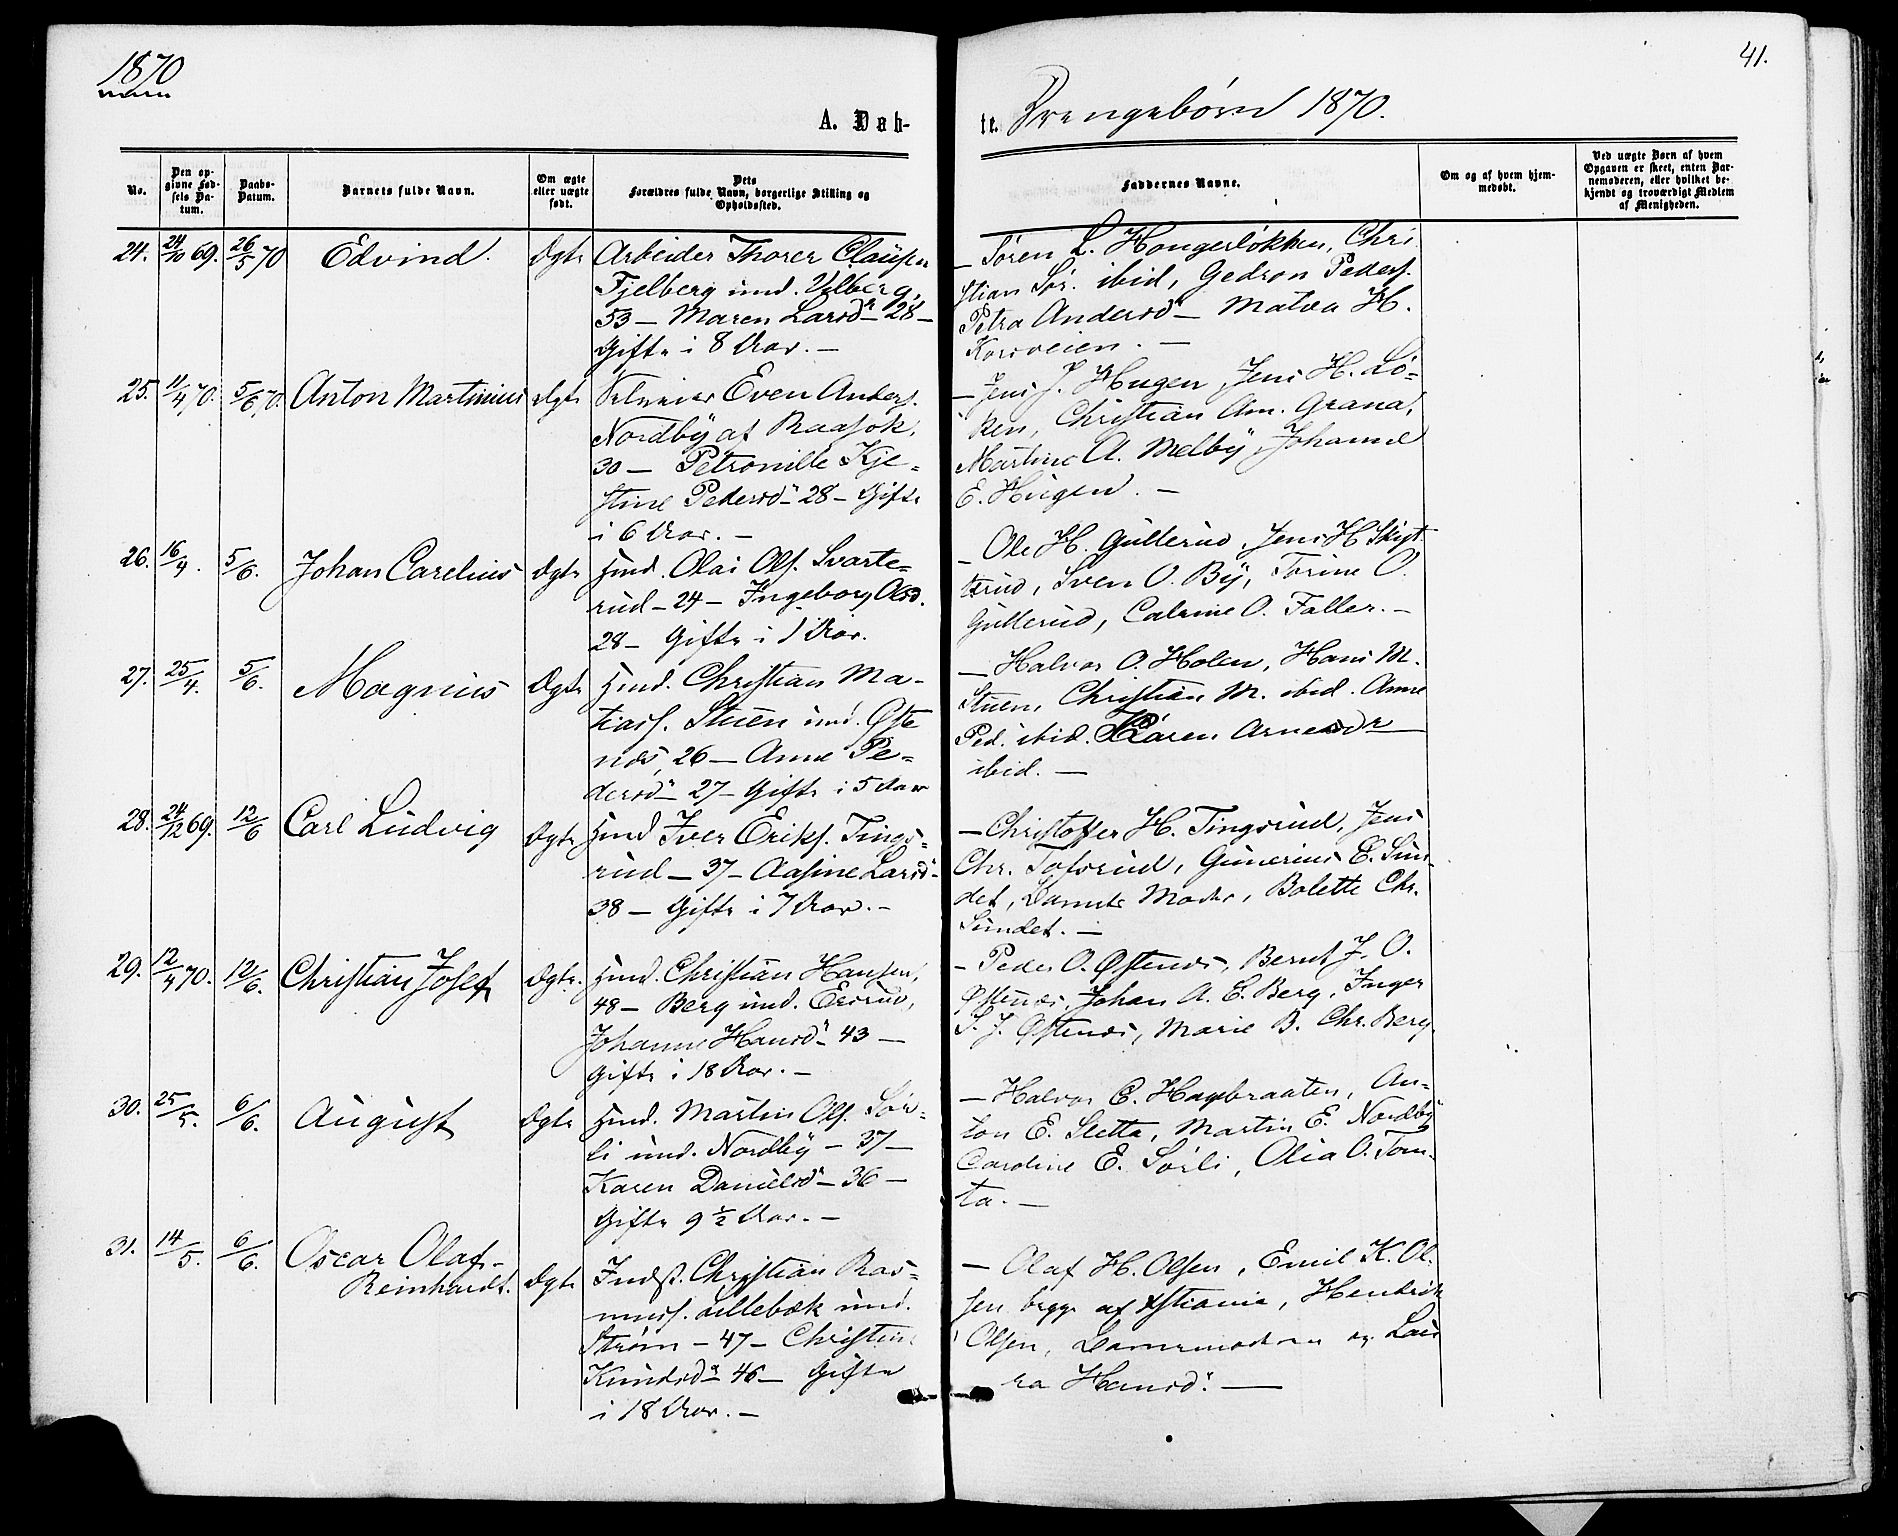 1870
41.
A. Døb-
te. Drengebørn 1870.
No.
Den opgivne Fødsels Datum.
Daabs-Datum.
Barnets fulde Navn.
Om ægte eller uægte født.
Dets Forældres fulde Navn, borgerlige Stilling og Opholdssted.
Faddernes Navne.
Om og af hvem hjemmedøbt.
Ved uægte Børn af hvem Opgaven er skeet, enten Barnemoderen, eller hvilket bekjendt og troværdigt Medlem af Menigheden.
24. 24/10 69. 26/5 70 Edvind. Ægte
Arbeider Thorer Claüsen
Fjelberg und. Ulberg,
53 — Maren Larsdr 28 —
Gifte i 8 Aar. —
— Søren L. Haugerløkken, Chri
stian Sør. ibid, Peders.
Petra Andersdr — Matea H.
Korsveien. —
25. 11/4 70. 5/6 70. Anton Martinius Ægte
Even Anders.
Nordbÿ af Raasok.
30 — Petronille Kje-
stine Pedersdr 28 — Gifte
i 6 Aar. —
— Jens J. Haugen, Jens H. Lø-
ken, Christian Am.
Martine A. Melbÿ, Johanne
E. Haugen. —
26. 16/4. 5/6. Johan Carelius Ægte
Hmd. Olai Ols. Svarte-
rüd — 24 — Ingeborg Olsd.
28 — Gifte i 1 Aar.
— Ole H. Gülterüd, Jens H
trüd, Sven O. Bÿ, Torine O.
Gülterüd, O. Faller. —
27. 25/4. 5/6. Magnüs Ægte
Hmd. Christian Ma-
tiass. Stüen und. Øste
næs, 26 — Anne Pe-
dersdr 27 — Gifte i 5 Aar
— Halvor O. Holen, Hans M.
Stüen, Christian M. ibid. Anne
Ped. ibid. Karen Arnesdr
ibid. —
28. 24/12 69. 12/6 Carl Lüdvig Ægte
Hmd Iver Eriks. Tings-
rüd — 37 — Aasine Larsd
38 — Gifte i 7 Aar. —
— Christoffer H. Tingsrüd, Jens
Chr. Tofsrüd, Günerius E. Sün-
det, Barnets Moder, Bolette Chr.
Sündet. —
29. 12/4 70. 12/6. Christian Josef Ægte.
Hmd. Christian Hansen,
48 — Berg und. Ersrüd,
Johanne Hansdr 43 —
Gifte i 18 Aar. —
— Peder O. Østenæs, Bernt J. O.
Østenæs, Johan A. C. Berg, Inger
S. J. Østenæs, Marie B. Chr. Berg.
30. 25/5. 6/6. Aügüst Ægte
Hmd. Martin Ols. Sør-
li und. Nordbÿ — 37 —
Karen Danielsdr — 36 —
Gifte 9 1/2 Aar. —
— Halvor C. Hagebraaten, An-
ton E. Sletta, Martin E. Nordbÿ
Caroline E. Sørli, Olea O. Tom-
ta. —
31. 14/5. 6/6. Oscar Olaf-
Reinhardt. Ægte
Indst. Christian Ras-
muss. Lillebæk und.
Strøm — 47 — Christine
Knüdsdr 46 — Gifte
i 18 Aar. —
— Olaf H. Olsen, Emil K. Ol-
sen begge af Xstiania, Hendrik
Olsen, Barnemoderen og Laü
ra Hansd. —